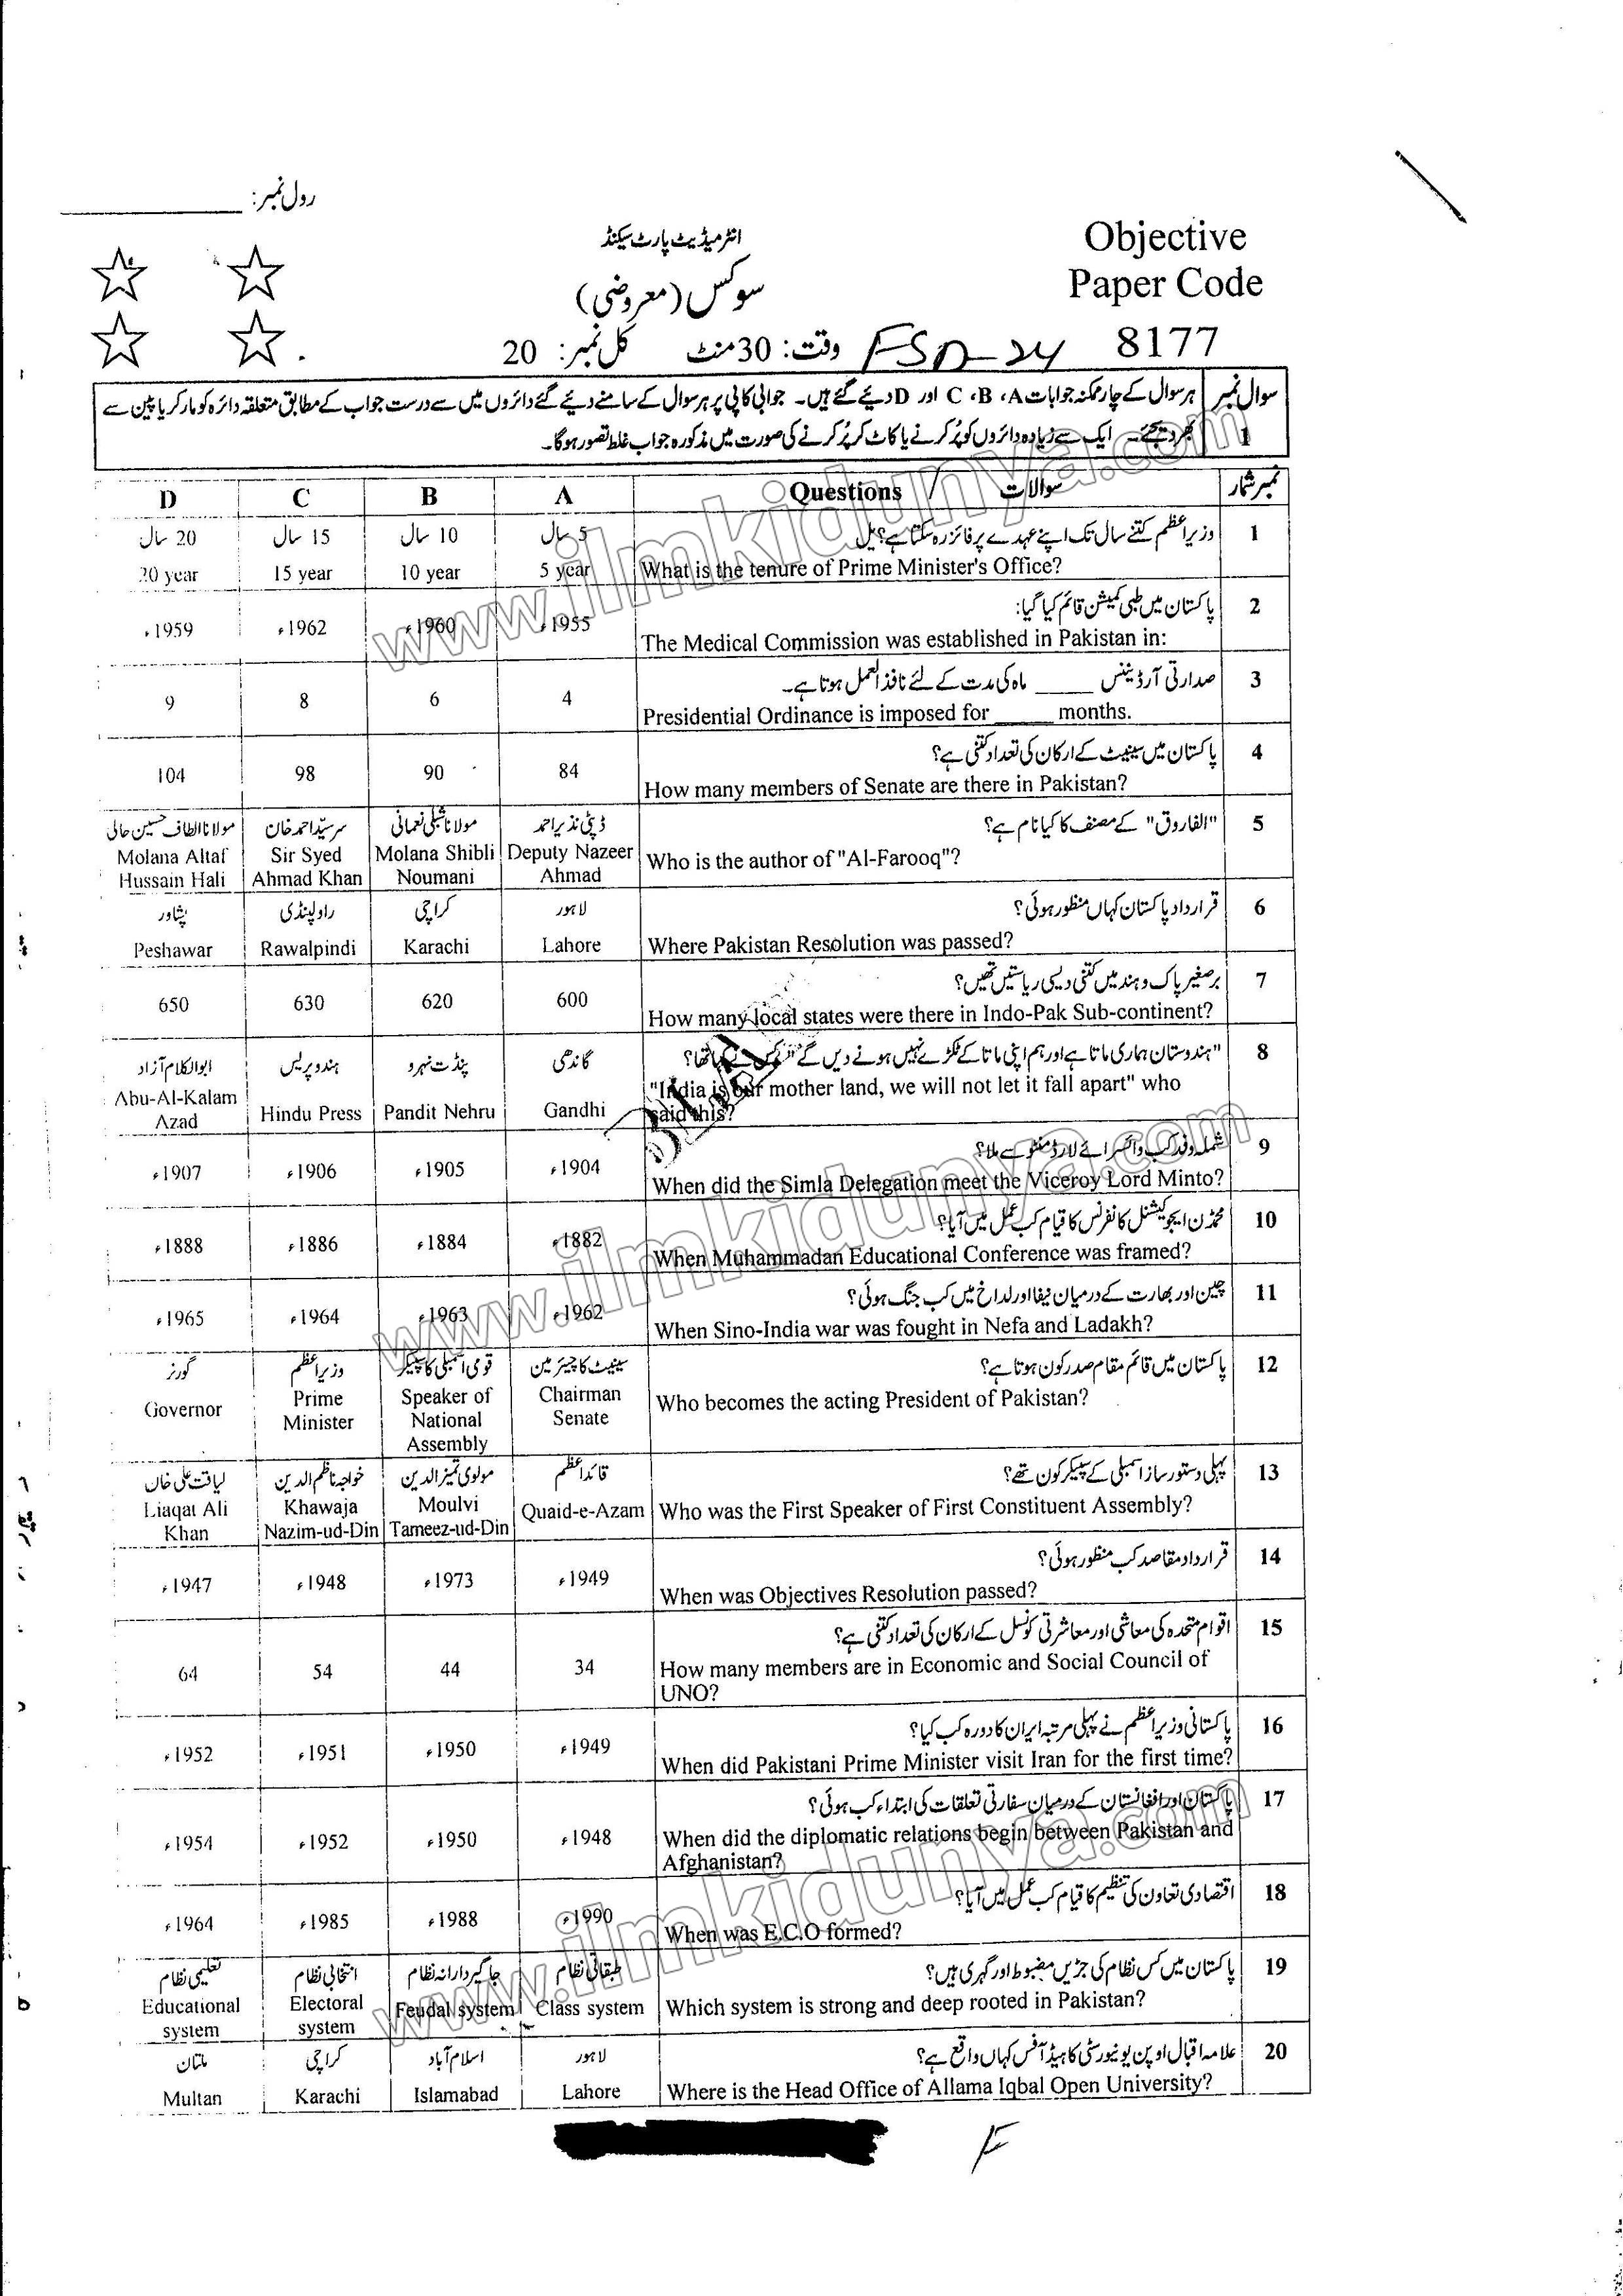 رول نمبر: ____________
انٹرمیڈیٹ پارٹ سیکنڈ
Objective
سوکس (معروضی)
Paper Code
وقت: 30 منٹ کل نمبر: 20
FSD-24
8177
سوال نمبر 1
ہر سوال کے چار ممکنہ جوابات A، B، C اور D دیئے گئے ہیں۔ جوابی کاپی پر ہر سوال کے سامنے دیئے گئے دائروں میں سے درست جواب کے مطابق متعلقہ دائرہ کو مارکر یا پین سے
بھر دیجئے۔ ایک سے زیادہ دائروں کو پُر کرنے یا کاٹ کر پُر کرنے کی صورت میں مذکورہ جواب غلط تصور ہوگا۔
D C B A Questions / سوالات نمبر شمار
20 سال 15 سال 10 سال 5 سال وزیراعظم کتنے سال تک اپنے عہدے پر فائز رہ سکتا ہے؟ 1
20 year 15 year 10 year 5 year What is the tenure of Prime Minister's Office?
پاکستان میں طبی کمیشن قائم کیا گیا: 2
1959ء 1962ء 1960ء 1955ء The Medical Commission was established in Pakistan in:
صدارتی آرڈیننس _____ ماہ کی مدت کے لئے نافذ العمل ہوتا ہے۔ 3
9 8 6 4 Presidential Ordinance is imposed for _____ months.
پاکستان میں سینیٹ کے ارکان کی تعداد کتنی ہے؟ 4
104 98 90 84 How many members of Senate are there in Pakistan?
مولانا الطاف حسین حالی سرسیّد احمد خان مولانا شبلی نعمانی ڈپٹی نذیر احمد "الفاروق" کے مصنف کا کیا نام ہے؟ 5
Molana Altaf Hussain Hali Sir Syed Ahmad Khan Molana Shibli Noumani Deputy Nazeer Ahmad Who is the author of "Al-Farooq"?
پشاور راولپنڈی کراچی لاہور قرارداد پاکستان کہاں منظور ہوئی؟ 6
Peshawar Rawalpindi Karachi Lahore Where Pakistan Resolution was passed?
برصغیر پاک و ہند میں کتنی دیسی ریاستیں تھیں؟ 7
650 630 620 600 How many local states were there in Indo-Pak Sub-continent?
ابوالکلام آزاد ہندو پریس پنڈت نہرو گاندھی "ہندوستان ہماری ماتا ہے اور ہم اپنی ماتا کے ٹکڑے نہیں ہونے دیں گے" کس نے کہا تھا؟ 8
Abu-Al-Kalam Azad Hindu Press Pandit Nehru Gandhi "India is our mother land, we will not let it fall apart" who said this?
شملہ وفد کب وائسرائے لارڈ منٹو سے ملا؟ 9
1907ء 1906ء 1905ء 1904ء When did the Simla Delegation meet the Viceroy Lord Minto?
محمڈن ایجوکیشنل کانفرنس کا قیام کب عمل میں آیا؟ 10
1888ء 1886ء 1884ء 1882ء When Muhammadan Educational Conference was framed?
چین اور بھارت کے درمیان نیفا اور لداخ میں کب جنگ ہوئی؟ 11
1965ء 1964ء 1963ء 1962ء When Sino-India war was fought in Nefa and Ladakh?
گورنر وزیراعظم قومی اسمبلی کا سپیکر سینیٹ کا چیئرمین پاکستان میں قائم مقام صدر کون ہوتا ہے؟ 12
Governor Prime Minister Speaker of National Assembly Chairman Senate Who becomes the acting President of Pakistan?
لیاقت علی خاں خواجہ ناظم الدین مولوی تمیز الدین قائداعظم پہلی دستور ساز اسمبلی کے سپیکر کون تھے؟ 13
Liaqat Ali Khan Khawaja Nazim-ud-Din Moulvi Tameez-ud-Din Quaid-e-Azam Who was the First Speaker of First Constituent Assembly?
قرارداد مقاصد کب منظور ہوئی؟ 14
1947ء 1948ء 1973ء 1949ء When was Objectives Resolution passed?
اقوام متحدہ کی معاشی اور معاشرتی کونسل کے ارکان کی تعداد کتنی ہے؟ 15
64 54 44 34 How many members are in Economic and Social Council of UNO?
پاکستانی وزیراعظم نے پہلی مرتبہ ایران کا دورہ کب کیا؟ 16
1952ء 1951ء 1950ء 1949ء When did Pakistani Prime Minister visit Iran for the first time?
پاکستان اور افغانستان کے درمیان سفارتی تعلقات کی ابتداء کب ہوئی؟ 17
1954ء 1952ء 1950ء 1948ء When did the diplomatic relations begin between Pakistan and Afghanistan?
اقتصادی تعاون کی تنظیم کا قیام کب عمل میں آیا؟ 18
1964ء 1985ء 1988ء 1990ء When was E.C.O formed?
تعلیمی نظام انتخابی نظام جاگیردارانہ نظام طبقاتی نظام پاکستان میں کس نظام کی جڑیں مضبوط اور گہری ہیں؟ 19
Educational system Electoral system Feudal system Class system Which system is strong and deep rooted in Pakistan?
ملتان کراچی اسلام آباد لاہور علامہ اقبال اوپن یونیورسٹی کا ہیڈ آفس کہاں واقع ہے؟ 20
Multan Karachi Islamabad Lahore Where is the Head Office of Allama Iqbal Open University?
www.ilmkidunya.com
www.ilmkidunya.com
www.ilmkidunya.com